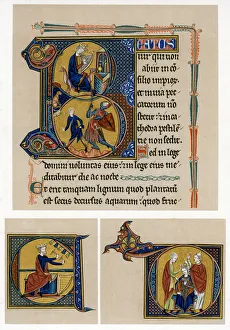 EATUS
uir qui non
abiit in co
silio impior
et in uia pec
catorum non
stetit: ⁊ in ca
thedra pestile
tie non sedit.
Sed in lege
domini uoluntas eius: ⁊ in lege eius me
ditabitur die ac nocte
Et erit tanquam lignum quod plantatu
est secus decursus aquarum: quod fruc